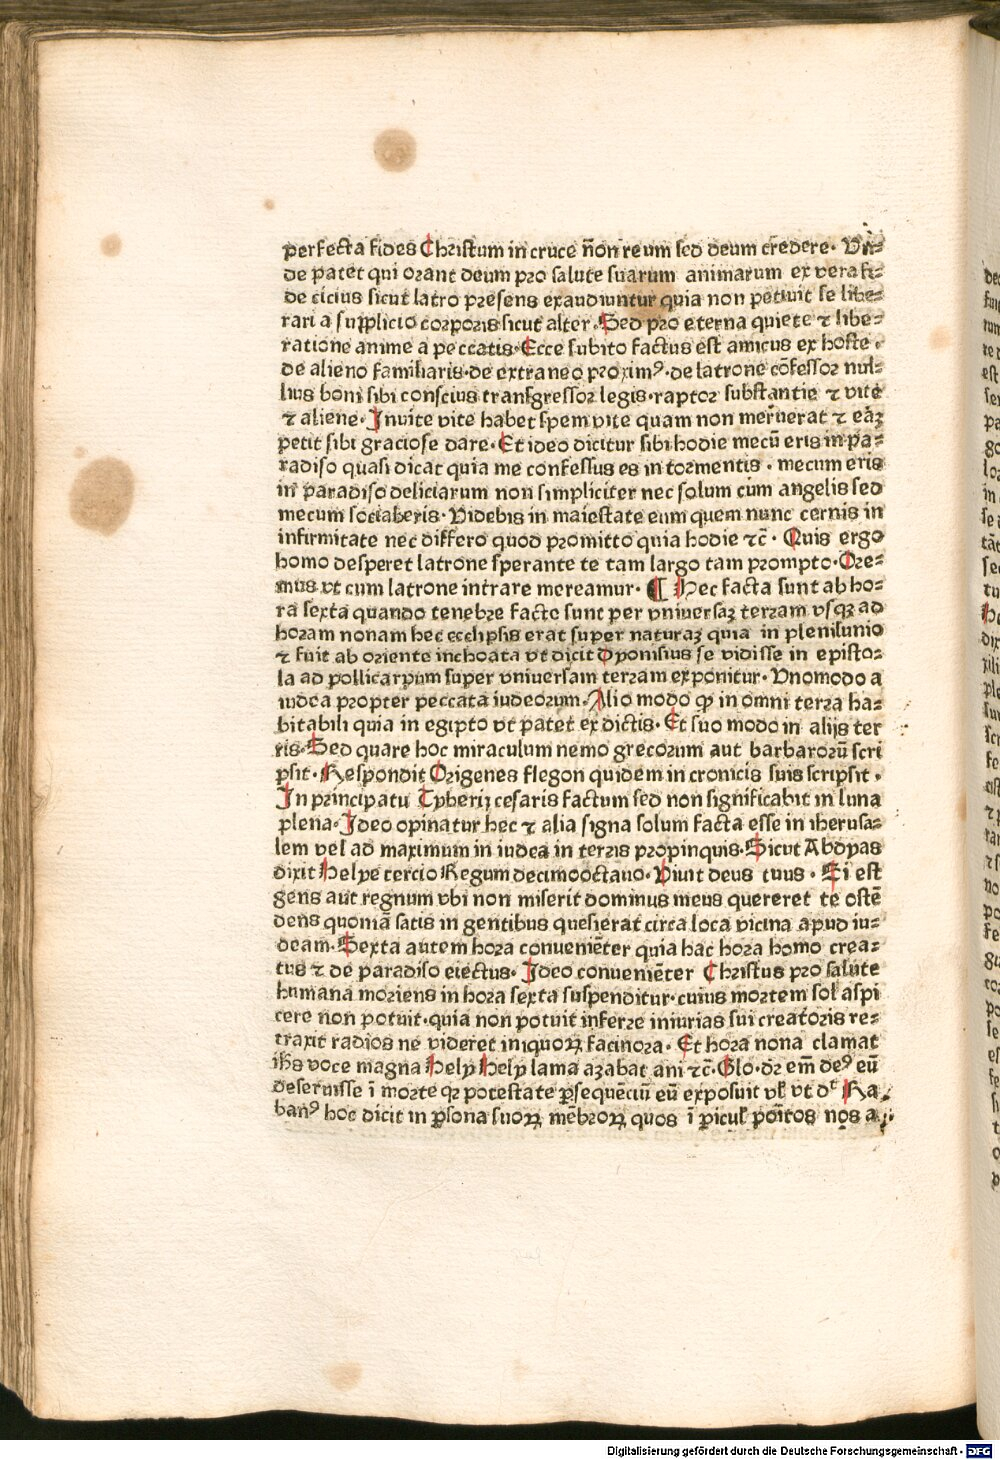 perfecta fides Christum in cruce n̄on reum sed deum credere. Vn=
de patet qui orant deum pro salute suarum animarum ex vera fi=
de cicius sicut latro presens exaudiuntur quia non petiuit se libe=
rari a supplicio corporis sicut alter. Sed pro eterna quiete ⁊ libe=
ratione anime a peccatis. Ecce subito factus est amicus ex hoste.
de alieno familiaris. de extraneo proximꝰ. de latrone cōfessor nul=
lius boni sibi conscius transgressor legis. raptor substantie ⁊ vite
⁊ aliene. Inuite vite habet spem vite quam non meruerat ⁊ eāꝫ
petit sibi graciose dare. Et ideo dicitur sibi hodie mecū eris in pa=
radiso quasi dicat quia me confessus es in tormentis. mecum eris
in paradiso deliciarum non simpliciter nec solum cum angelis sed
mecum sociaberis. Videbis in maiestate eum quem nunc cernis in
infirmitate nec differo quod promitto quia hodie ⁊c̄. Quis ergo
homo desperet latrone sperante te tam largo tam prompto. Ore=
mus vt cum latrone intrare mereamur. ¶ Hec facta sunt ab ho=
ra sexta quando tenebre facte sunt per vniuersaꝫ terram vsqꝫ ad
horam nonam hec ecclipsis erat super naturaꝫ quia in plenilunio
⁊ fuit ab oriente inchoata vt dicit Dyonisius se vidisse in episto=
la ad pollicarpum super vniuersam terram exponitur. Vnomodo a
iudea propter peccata iudeorum. Alio modo ꝙ in omni terra ha=
bitabili quia in egipto vt patet ex dictis. Et suo modo in alijs ter
ris. Sed quare hoc miraculum nemo grecorum aut barbarorū scri
psit. Respondit Origenes flegon quidem in cronicis suis scripsit.
In principatu Tyberij cesaris factum sed non significabit in luna
plena. Ideo opinatur hec ⁊ alia signa solum facta esse in iherusa=
lem vel ad maximum in iudea in terris propinquis. Sicut Abdyas
dixit Helye tercio Regum decimooctauo. Viuit deus tuus. Si est
gens aut regnum vbi non miserit dominus meus quereret te ostē
dens quoniā satis in gentibus quesierat circa loca vicina apud iu=
deam. Sexta autem hora conueniēter quia hac hora homo crea=
tus ⁊ de paradiso eiectus. Ideo conueniēter Christus pro salute
humana moriens in hora sexta suspenditur. cuius mortem sol aspi
cere non potuit. quia non potuit inferre iniurias sui creatoris re=
traxit radios ne videret iniquoꝝ facinora. Et hora nona clamat
ihs voce magna Hely Hely lama azabat ani ⁊c̄. Glo. dr̄ em̄ deꝰ eū
deseruisse ī morte qꝛ potestate ꝑsequēciū eū exposuit vl̓ vt dᵗ Ra
banꝰ hoc dicit in ꝑsona suoꝝ mēbroꝝ quos ī ꝑicul̓ poītos nos a
Digitalisierung gefördert durch die Deutsche Forschungsgemeinschaft - DFG